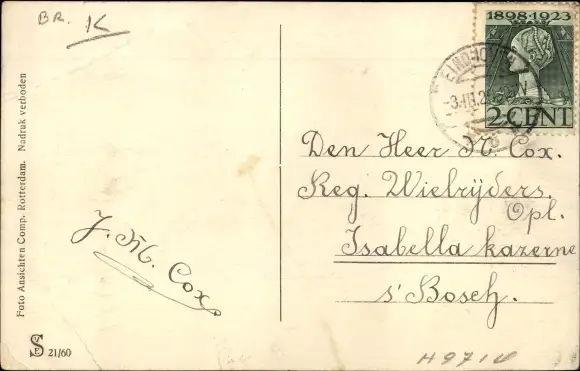 BR. K
1898-1923
EINDHOVEN
2 CENT
Den Heer M. Cox.
Reg. Wielrijders.
Opl.
Isabella kazerne
s'Bosch.
J. M. Cox
Foto Ansichten Comp. Rotterdam. Nadruk verboden
21/60